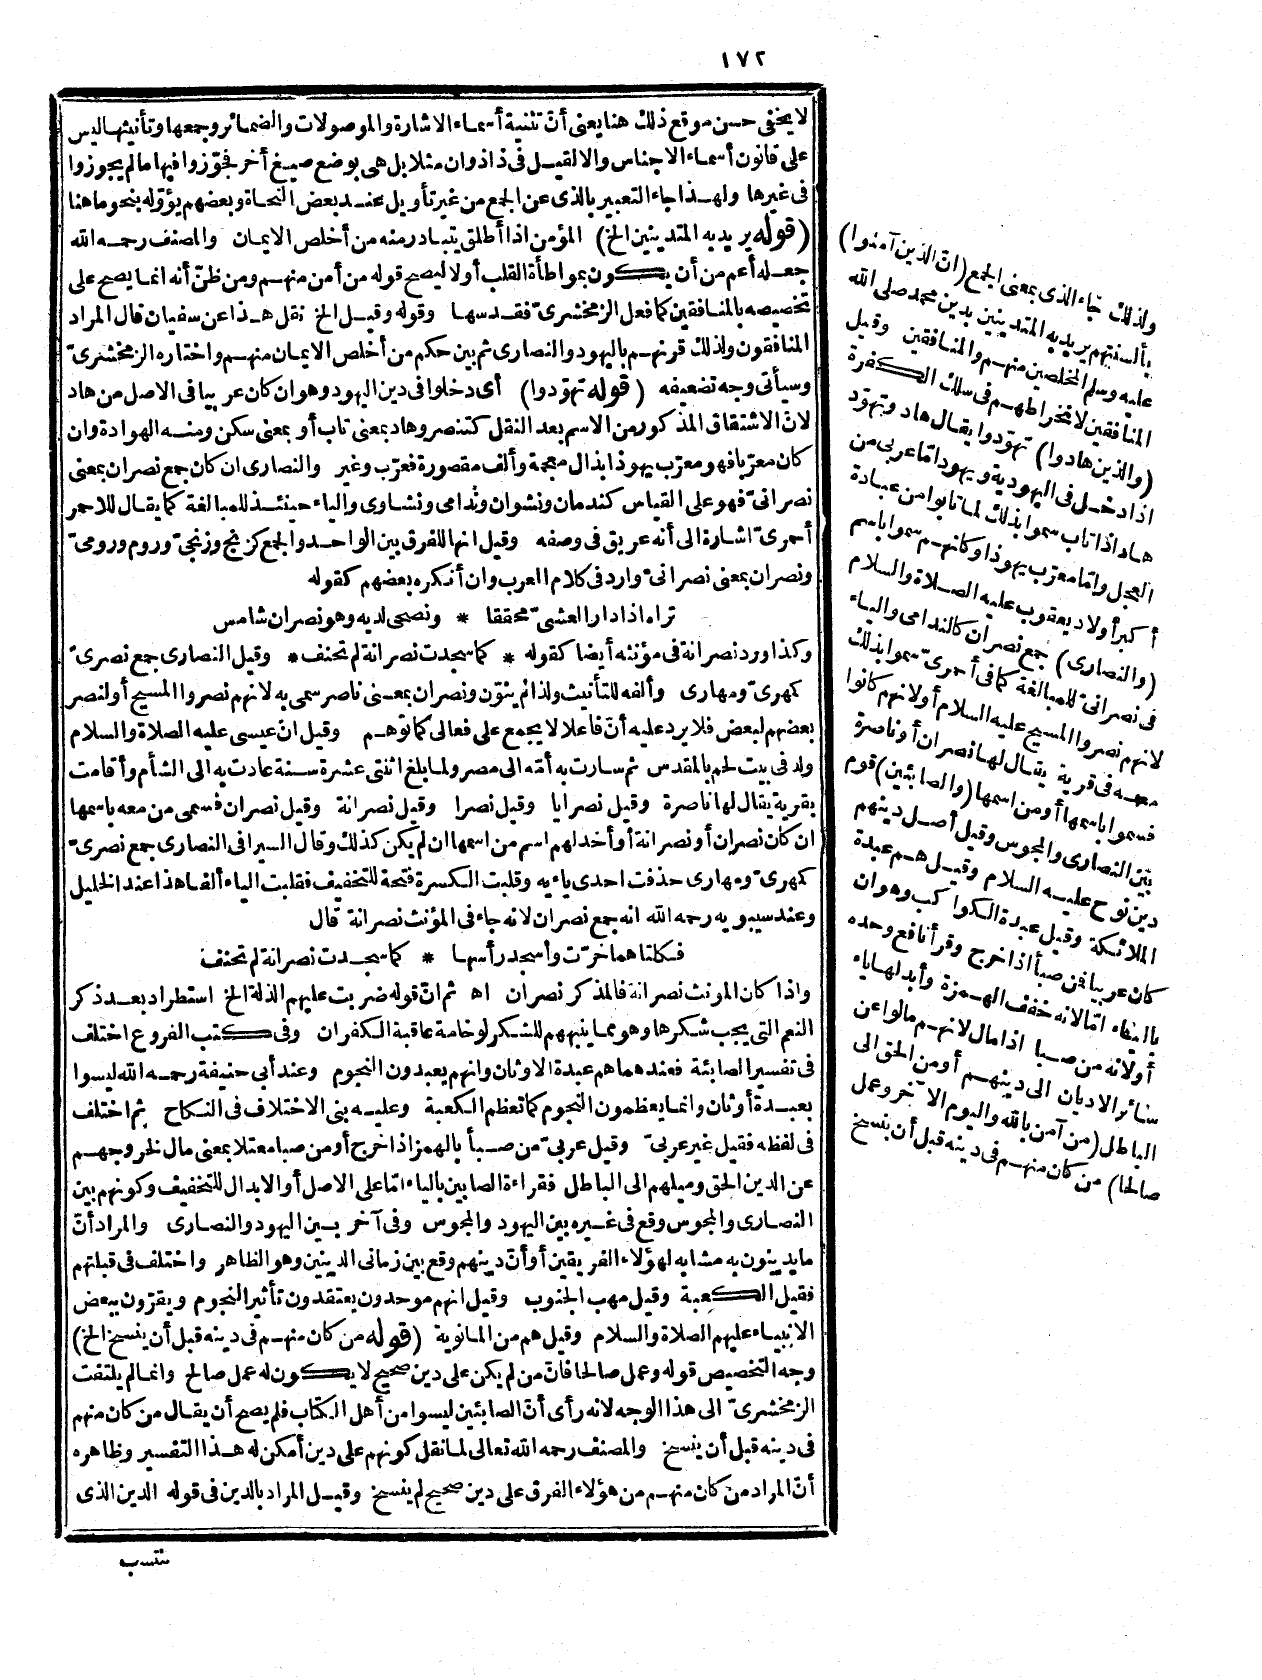 ١٧٢
لا يخفى حسن موقع ذلك هنا يعنى أنّ تثنية أسماء الاشارة والموصولات والضمائر وجمعها وتأنيثها ليس
على قانون أسماء الاجناس والا لقيل فى ذا ذوان مثلا بل هى بوضع صيغ أخر فجوّزوا فيها ما لم يجوزوا
فى غيرها ولهذا جاء التعبير بالذى عن الجمع من غير تأويل عند بعض النحاة وبعضهم يؤوّله بنحو ما هنا
(قوله يريد به المتدينين الخ) المؤمن اذا أطلق يتبادر منه من أخلص الايمان والمصنف رحمه الله
جعله أعم من أن يكون بمواطأة القلب أولا ليصح قوله من أمن منهم ومن ظنّ أنه انما يصح على
تخصيصه بالمنافقين كما فعل الزمخشرىّ فقد سها وقوله وقيل الخ نقل هذا عن سفيان قال المراد
المنافقون ولذلك قرنهم باليهود والنصارى ثم بين حكم من أخلص الايمان منهم واختاره الزمخشرىّ
وسيأتى وجه تضعيفه (قوله تهوّدوا) أى دخلوا فى دين اليهود وهو ان كان عربيا فى الاصل من هاد
لانّ الاشتقاق المذكور من الاسم بعد النقل كتنصر وهاد بمعنى تاب أو بمعنى سكن ومنه الهوادة وان
كان معرّبا فهو معرّب يهوذا بذال معجمة وألف مقصورة فعرّب وغير والنصارى ان كان جمع نصران بمعنى
نصرانىّ فهو على القياس كندمان ونشوان وندامى ونشاوى والياء حينئذ للمبالغة كما يقال للاحمر
أحمرىّ اشارة الى أنه عريق فى وصفه وقيل انها للفرق بين الواحد والجمع كزنج وزنجىّ وروم ورومىّ
ونصران بمعنى نصرانىّ وارد فى كلام العرب وان أنكره بعضهم كقوله
تراه اذا دار العشىّ محققا * ونصحى لديه وهو نصران شامس
وكذا ورد نصرانة فى مؤنثه أيضا كقوله * كما سجدت نصرانة لم تحنف * وقيل النصارى جمع نصرىّ
كمهرىّ ومهارى وألفه للتأنيث ولذا لم ينوّن ونصران بمعنى ناصر سمى به لانهم نصروا المسيح أو لنصر
بعضهم لبعض فلا يرد عليه أنّ فاعلا لا يجمع على فعالى كما توهم وقيل انّ عيسى عليه الصلاة والسلام
ولد فى بيت لحم بالمقدس ثم سارت به أمّه الى مصر ولما بلغ اثنتى عشرة سنة عادت به الى الشأم وأقامت
بقرية يقال لها ناصرة وقيل نصرايا وقيل نصرا وقيل نصرانة وقيل نصران فسمى من معه باسمها
ان كان نصران أو نصرانة أو أخذ لهم اسم من اسمها ان لم يكن كذلك وقال السيرافى النصارى جمع نصرىّ
كمهرىّ ومهارى حذفت احدى ياءيه وقلبت الكسرة فتحة للتخفيف فقلبت الياء ألفا هذا عند الخليل
وعند سيبويه رحمه الله انه جمع نصران لانه جاء فى المؤنث نصرانة قال
فكلتاهما خرّت وأسجد رأسها * كما سجدت نصرانة لم تحنف
واذا كان المؤنث نصرانة فالمذكر نصران اه ثم انّ قوله ضربت عليهم الذلة الخ استطراد بعد ذكر
النعم التى يجب شكرها وهو مما ينبههم للشكر لوخامة عاقبة الكفران وفى كتب الفروع اختلف
فى تفسير الصابئة فعندهما هم عبدة الاوثان وانهم يعبدون النجوم وعند أبى حنيفة رحمه الله ليسوا
بعبدة أوثان وانما يعظمون النجوم كما تعظم الكعبة وعليه بنى الاختلاف فى النكاح ثم اختلف
فى لفظه فقيل غير عربىّ وقيل عربىّ من صبأ بالهمز اذا خرج أو من صبا معتلا بمعنى مال لخروجهم
عن الدين الحق وميلهم الى الباطل فقراءة الصابين بالياء امّا على الاصل أو الابدال للتخفيف وكونهم بين
النصارى والمجوس وقع فى غيره بين اليهود والمجوس وفى آخر بين اليهود والنصارى والمراد أنّ
ما يدينون به مشابه لهؤلاء الفريقين أو أنّ دينهم وقع بين زمانى الدينين وهو الظاهر واختلف فى قبلتهم
فقيل الكعبة وقيل مهب الجنوب وقيل انهم موحدون يعتقدون تأثير النجوم ويقرّون ببعض
الانبياء عليهم الصلاة والسلام وقيل هم من المانوية (قوله من كان منهم فى دينه قبل أن ينسخ الخ)
وجه التخصيص قوله وعمل صالحا فانّ من لم يكن على دين صحيح لا يكون له عمل صالح وانما لم يلتفت
الزمخشرىّ الى هذا الوجه لانه رأى أنّ الصابئين ليسوا من أهل الكتاب فلم يصح أن يقال من كان منهم
فى دينه قبل أن ينسخ والمصنف رحمه الله تعالى لما نقل كونهم على دين أمكن له هذا التفسير وظاهره
أنّ المراد من كان منهم من هؤلاء الفرق على دين صحيح لم ينسخ وقيل المراد بالدين فى قوله الدين الذى
تنتسب
ولذلك جاء الذى بمعنى الجمع (انّ الذين آمنوا)
بألسنتهم يريد به المتدينين بدين محمد صلى الله
عليه وسلم المخلصين منهم والمنافقين وقيل
المنافقين لانخراطهم فى سلك الكفرة
(والذين هادوا) تهوّدوا يقال هاد وتهوّد
اذا دخل فى اليهودية ويهود امّا عربى من
هاد اذا تاب سموا بذلك لما تابوا من عبادة
العجل وامّا معرّب يهوذا وكانهم سموا باسم
أكبر أولاد يعقوب عليه الصلاة والسلام
(والنصارى) جمع نصران كالندامى والياء
فى نصرانىّ للمبالغة كما فى أحمرىّ سموا بذلك
لانهم نصروا المسيح عليه السلام أو لانهم كانوا
معه فى قرية يقال لها نصران أو ناصرة
فسموا باسمها أو من اسمها (والصابئين) قوم
بين النصارى والمجوس وقيل أصل دينهم
دين نوح عليه السلام وقيل هم عبدة
الملائكة وقيل عبدة الكواكب وهو ان
كان عربيا فمن صبأ اذا خرج وقرأ نافع وحده
بالياء امّا لانه خفف الهمزة وأبدلها ياء
أو لانه من صبا اذا مال لانهم مالوا عن
سائر الاديان الى دينهم أو من الحق الى
الباطل (من آمن بالله واليوم الآخر وعمل
صالحا) من كان منهم فى دينه قبل أن ينسخ